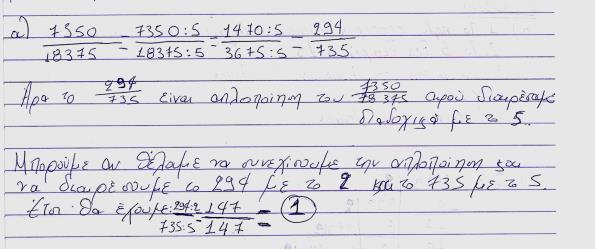 α) 7350/18375 = 7350:5/18375:5 = 1470:5/3675:5 = 294/735
Άρα το 294/735 είναι απλοποίηση του 7350/18375 αφού διαιρέσαμε
διαδοχικά με το 5.
Μπορούμε αν θέλαμε να συνεχίσουμε την απλοποίηση και
να διαιρέσουμε το 294 με το 2 και το 735 με το 5.
Έτσι θα έχουμε: 294:2/735:5 = 147/147 = 1